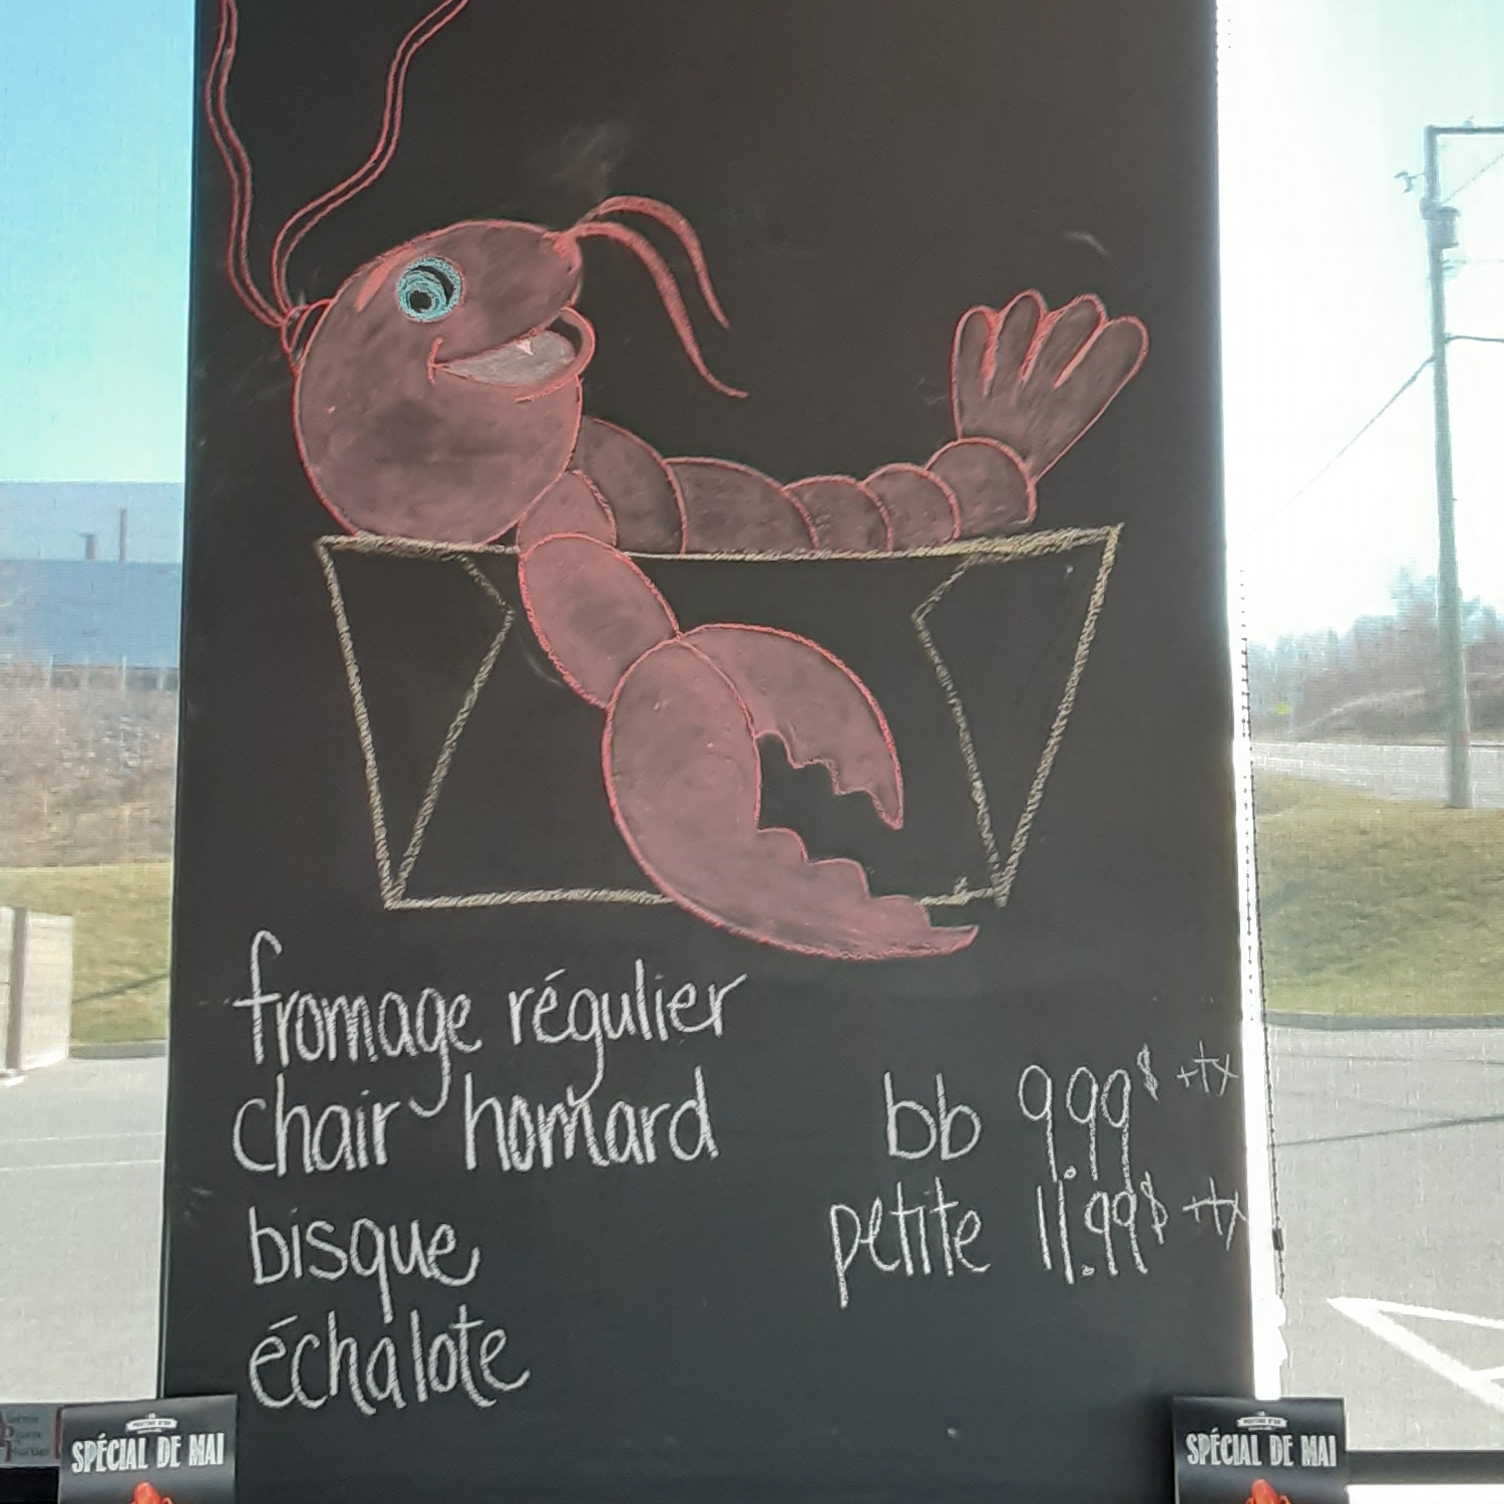 fromage régulier
chair homard
bisque
échalote
bb 9.99$ +tx
petite 11.99$ +tx
SPÉCIAL DE MAI
SPÉCIAL DE MAI